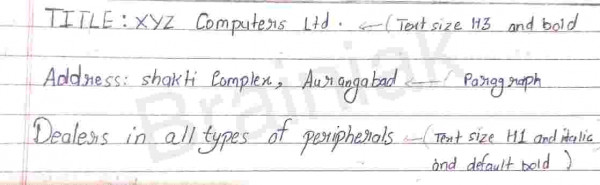 TITLE : XYZ Computers Ltd. ← (Text size H3 and bold
Address: shakti Complex, Aurangabad ← Paragraph
Dealers in all types of peripherals ← (Text size H1 and italic
and default bold )
Brainiak